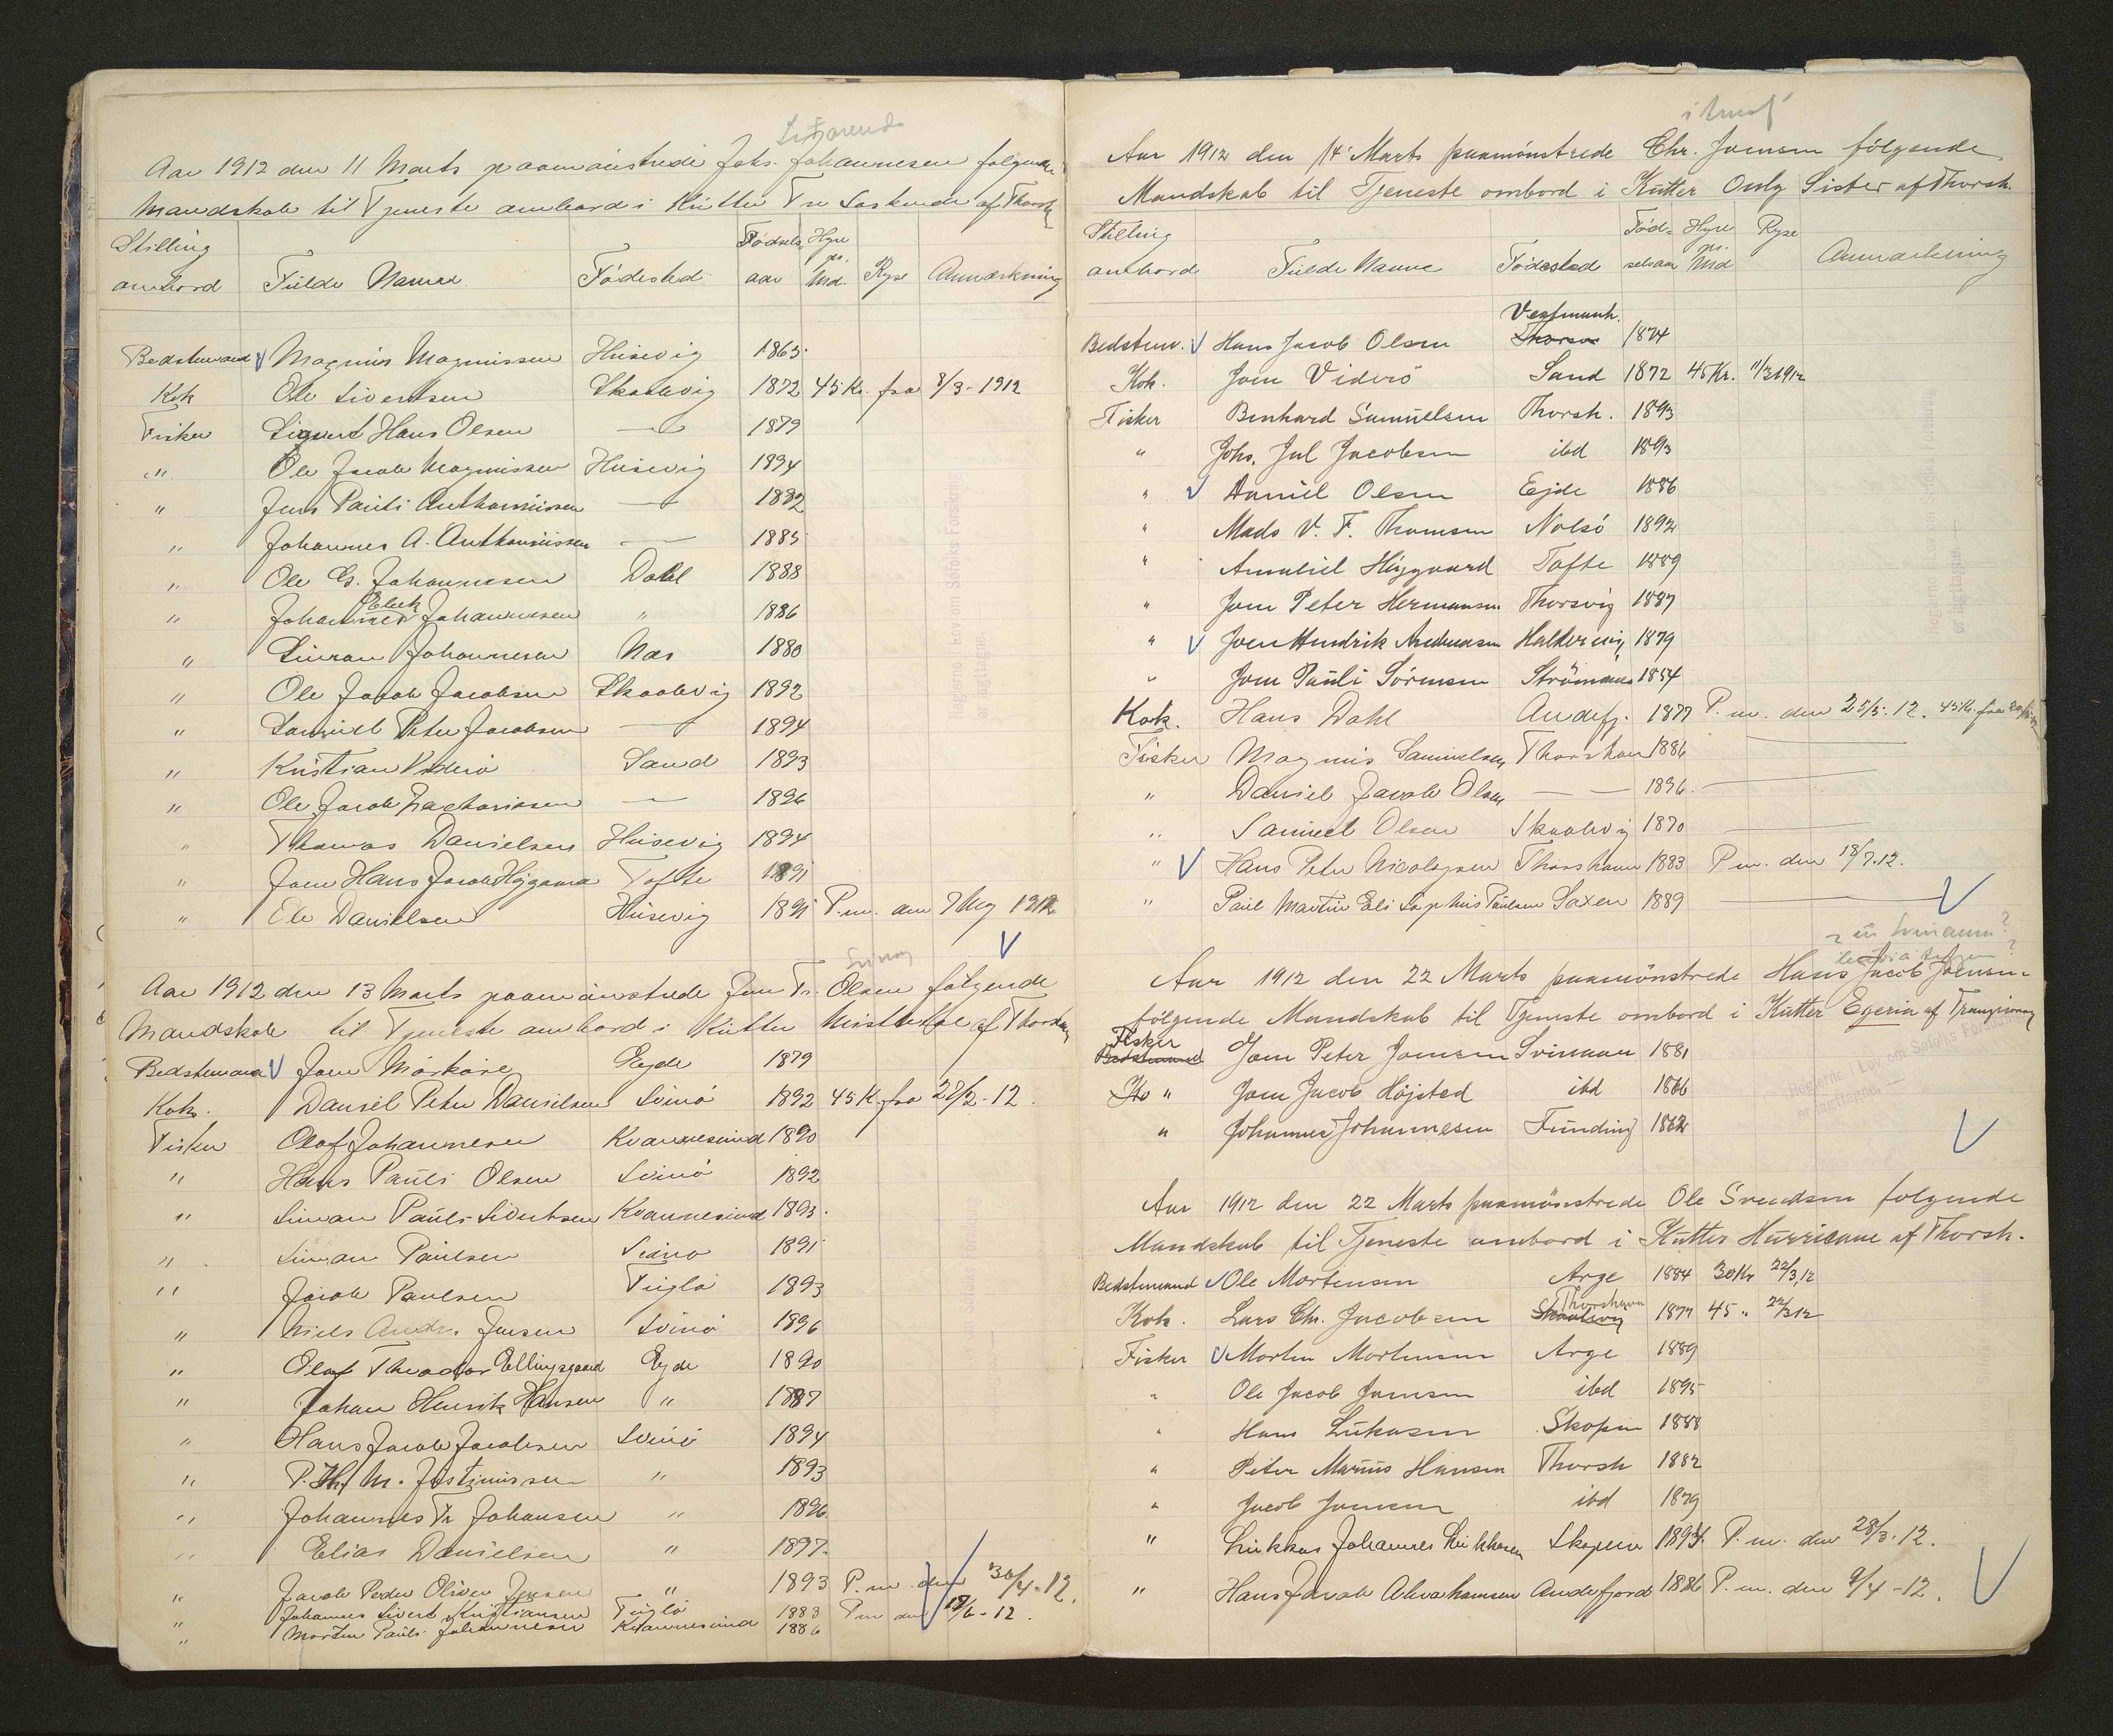 Aar 1912 den 11 Marts paamønstrede Johs. Johannesen følgende
Mandskab til Tjeneste ombord i Kutter Tre Søskende af Thorsh
Stilling ombord Fulde Navne Fødested Fødselsaar Hyre pr. Md. Ryse Anmærkning
Bedstemand Magnus Magnussen Húsevig 1865
Kok Ole Sivertsen Skaalevig 1872 45 Kr. fra 8/3-1912
Fisker Sigvert Hans Olsen — 1879
" Ole Jacob Magnussen Húsevig 1894
" Jens Pauli Anthoniussen — 1892
" Johannes A. Anthoniussen — 1885
" Ole G. Johannesen Dahl 1888
" Johannes Elick Johannesen " 1886
" Simon Johannesen Næs 1880
" Ole Jacob Jacobsen Skaalevig 1892
" Samuel Peter Jacobsen — 1894
" Kristian Viderø Sand 1893
" Ole Jacob Zachariasen — 1896
" Thomas Danielsen Húsevig 1894
" Joen Hans Jacob Højgaard Tofte 1891
" Ole Danielsen Húsevig 1895 P.m. den 7 Maj 1912
Svinoy
Aar 1912 den 13 Marts paamønstrede Joen Fr. Olsen følgende
Mandskab til Tjeneste ombord i Kutter af Thorshavn
Bedstemand Joen Mørkøre Ejde 1879
Kok. Daniel Peter Danielsen Svinø 1892 45 K. fra 28/2-12.
Fisker Olaf Johannesen Kvannesund 1890
" Hans Pauli Olsen Svinø 1892
" Simon Pauli Sivertsen Kvannesund 1893.
" Simon Paulsen Svinø 1891
" Jacob Paulsen Fuglø 1893
" Niels Andr. Jensen Svinø 1896
" Olaf Theodor Ellingsgaard Ejde 1890
" Johan Henrik Hansen " 1887
" Hans Jacob Jacobsen Svinø 1894
" P. Th. M. Justinussen " 1893
" Johannes Fr Johansen " 1896
" Elias Danielsen " 1897.
" Jacob Peder Oliver Jensen " 1893 P.m. den 30/4-12.
" Johannes Sivert Kristiansen Fuglø 1883 P.m. den 18/6-12.
" Morten Pauli Johannesen Kvannesund 1886
Aar 1912 den 14' Marts paamønstrede Chr. Joensen følgende
Mandskab til Tjeneste ombord i Kutter Only Sister af Thorsh.
Stilling ombord Fulde Navne Fødested Fødselsaar Hyre pr. Md Ryse Anmærkning
Vestmanh.
Bedstem. Hans Jacob Olsen 1874
Kok. Joen Viderö Sand 1872 45 Kr. 11/3 1912
Fisker Benhard Samuelsen Thorsh. 1893
" Johs. Jul Jacobsen ibd 1893
" Daniel Olsen Ejde 1886
" Mads V. F. Thomsen Nolsö 1892
" Höjgaard Tofte 1889
" Joen Peter Hermansen Thorsvig 1887
" Joen Hendrik Andreasen Haldersvig 1879
" Joen Pauli Sörensen Strömnæs 1854
Kok. Hans Dahl Andefj. 1877 P.m. den 25/5-12. 45 Kr. fra
Fisker Magnus Samuelsen Thorshavn 1886 —
" Daniel Jacob Olsen — 1896. —
" Samuel Olsen Skaalevig 1870 —
" Hans Peter Nicolajsen Thorshavn 1883 P.m. den 18/7.12.
" Paul Martin Eli Sophus Poulsen Saxen 1889 —
úr Svínoynni?
Aar 1912 den 22 Marts paamønstrede Hans Jacob Joensen
følgende Mandskab til Tjeneste ombord i Kutter Egeria af Trangisvaag
Fisker Bedstemand Joen Peter Joensen Svinøen 1881
" Joen Jacob Højsted ibd 1866
" Johannes Johannesen Funding 1862
Aar 1912 den 22 Marts paamønstrede Ole Svendsen følgende
Mandskab til Tjeneste ombord i Kutter Hurricane af Thorsh.
Bedstemand Ole Mortensen Arge 1884 30 Kr 22/3,12
Kok. Lars Chr. Jacobsen Skaalevig Thorshavn 1877 45 " 22/3 12
Fisker Morten Mortensen Arge 1889
" Ole Jacob Joensen ibd 1895
" Hans Lukasen Skopen 1888
" Peter Marius Hansen Thorsh 1882
" Jacob Joensen ibd 1879
" Lukkas Johannes Lukkasen Skopen 1893. P.m. den 28/3-12.
" Hans Jacob Abrahamsen Andefjord 1886 P.m. den 9/4-12.
Reglerne i Lov om Søfolks Forsikring
er iagttagne.